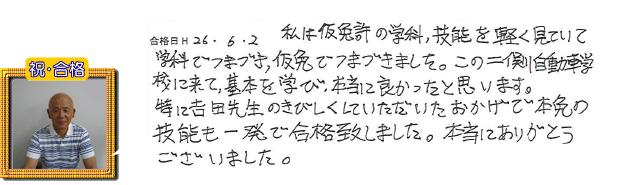 祝・合格
合格日 H 26．6．2 私は仮免許の学科，技能を軽く見ていて
学科でつまづき，仮免でつまづきました。この二俣自動車学
校に来て，基本を学び，本当に良かったと思います。
特に吉田先生のきびしくしていただいたおかげで本免の
技能も一発で合格致しました。本当にありがとう
ございました。